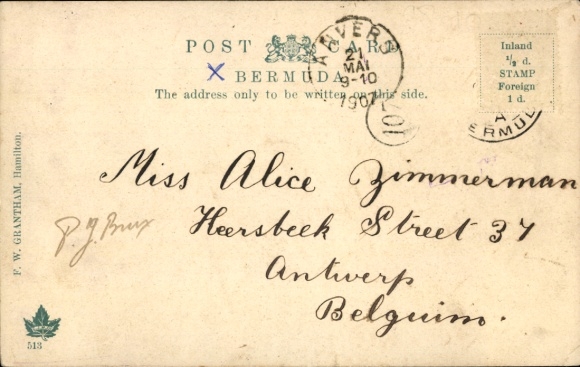 POST CARD
BERMUDA
The address only to be written on this side.
ANVERS
21
MAI
9-10
1907
Inland
½ d.
STAMP
Foreign
1 d.
Miss Alice Zimmerman
Heersbeek Street 37
Antwerp
Belguim.
F. W. GRANTHAM, Hamilton.
513